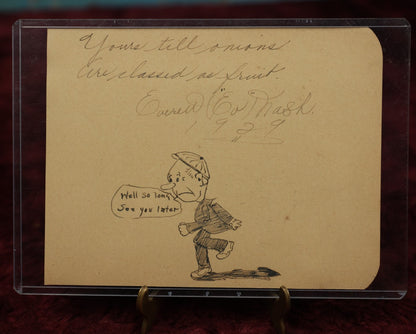 Yours till onions
Are classed as fruit.
Everett "Ev" Nash.
1929
Well So long
See you later